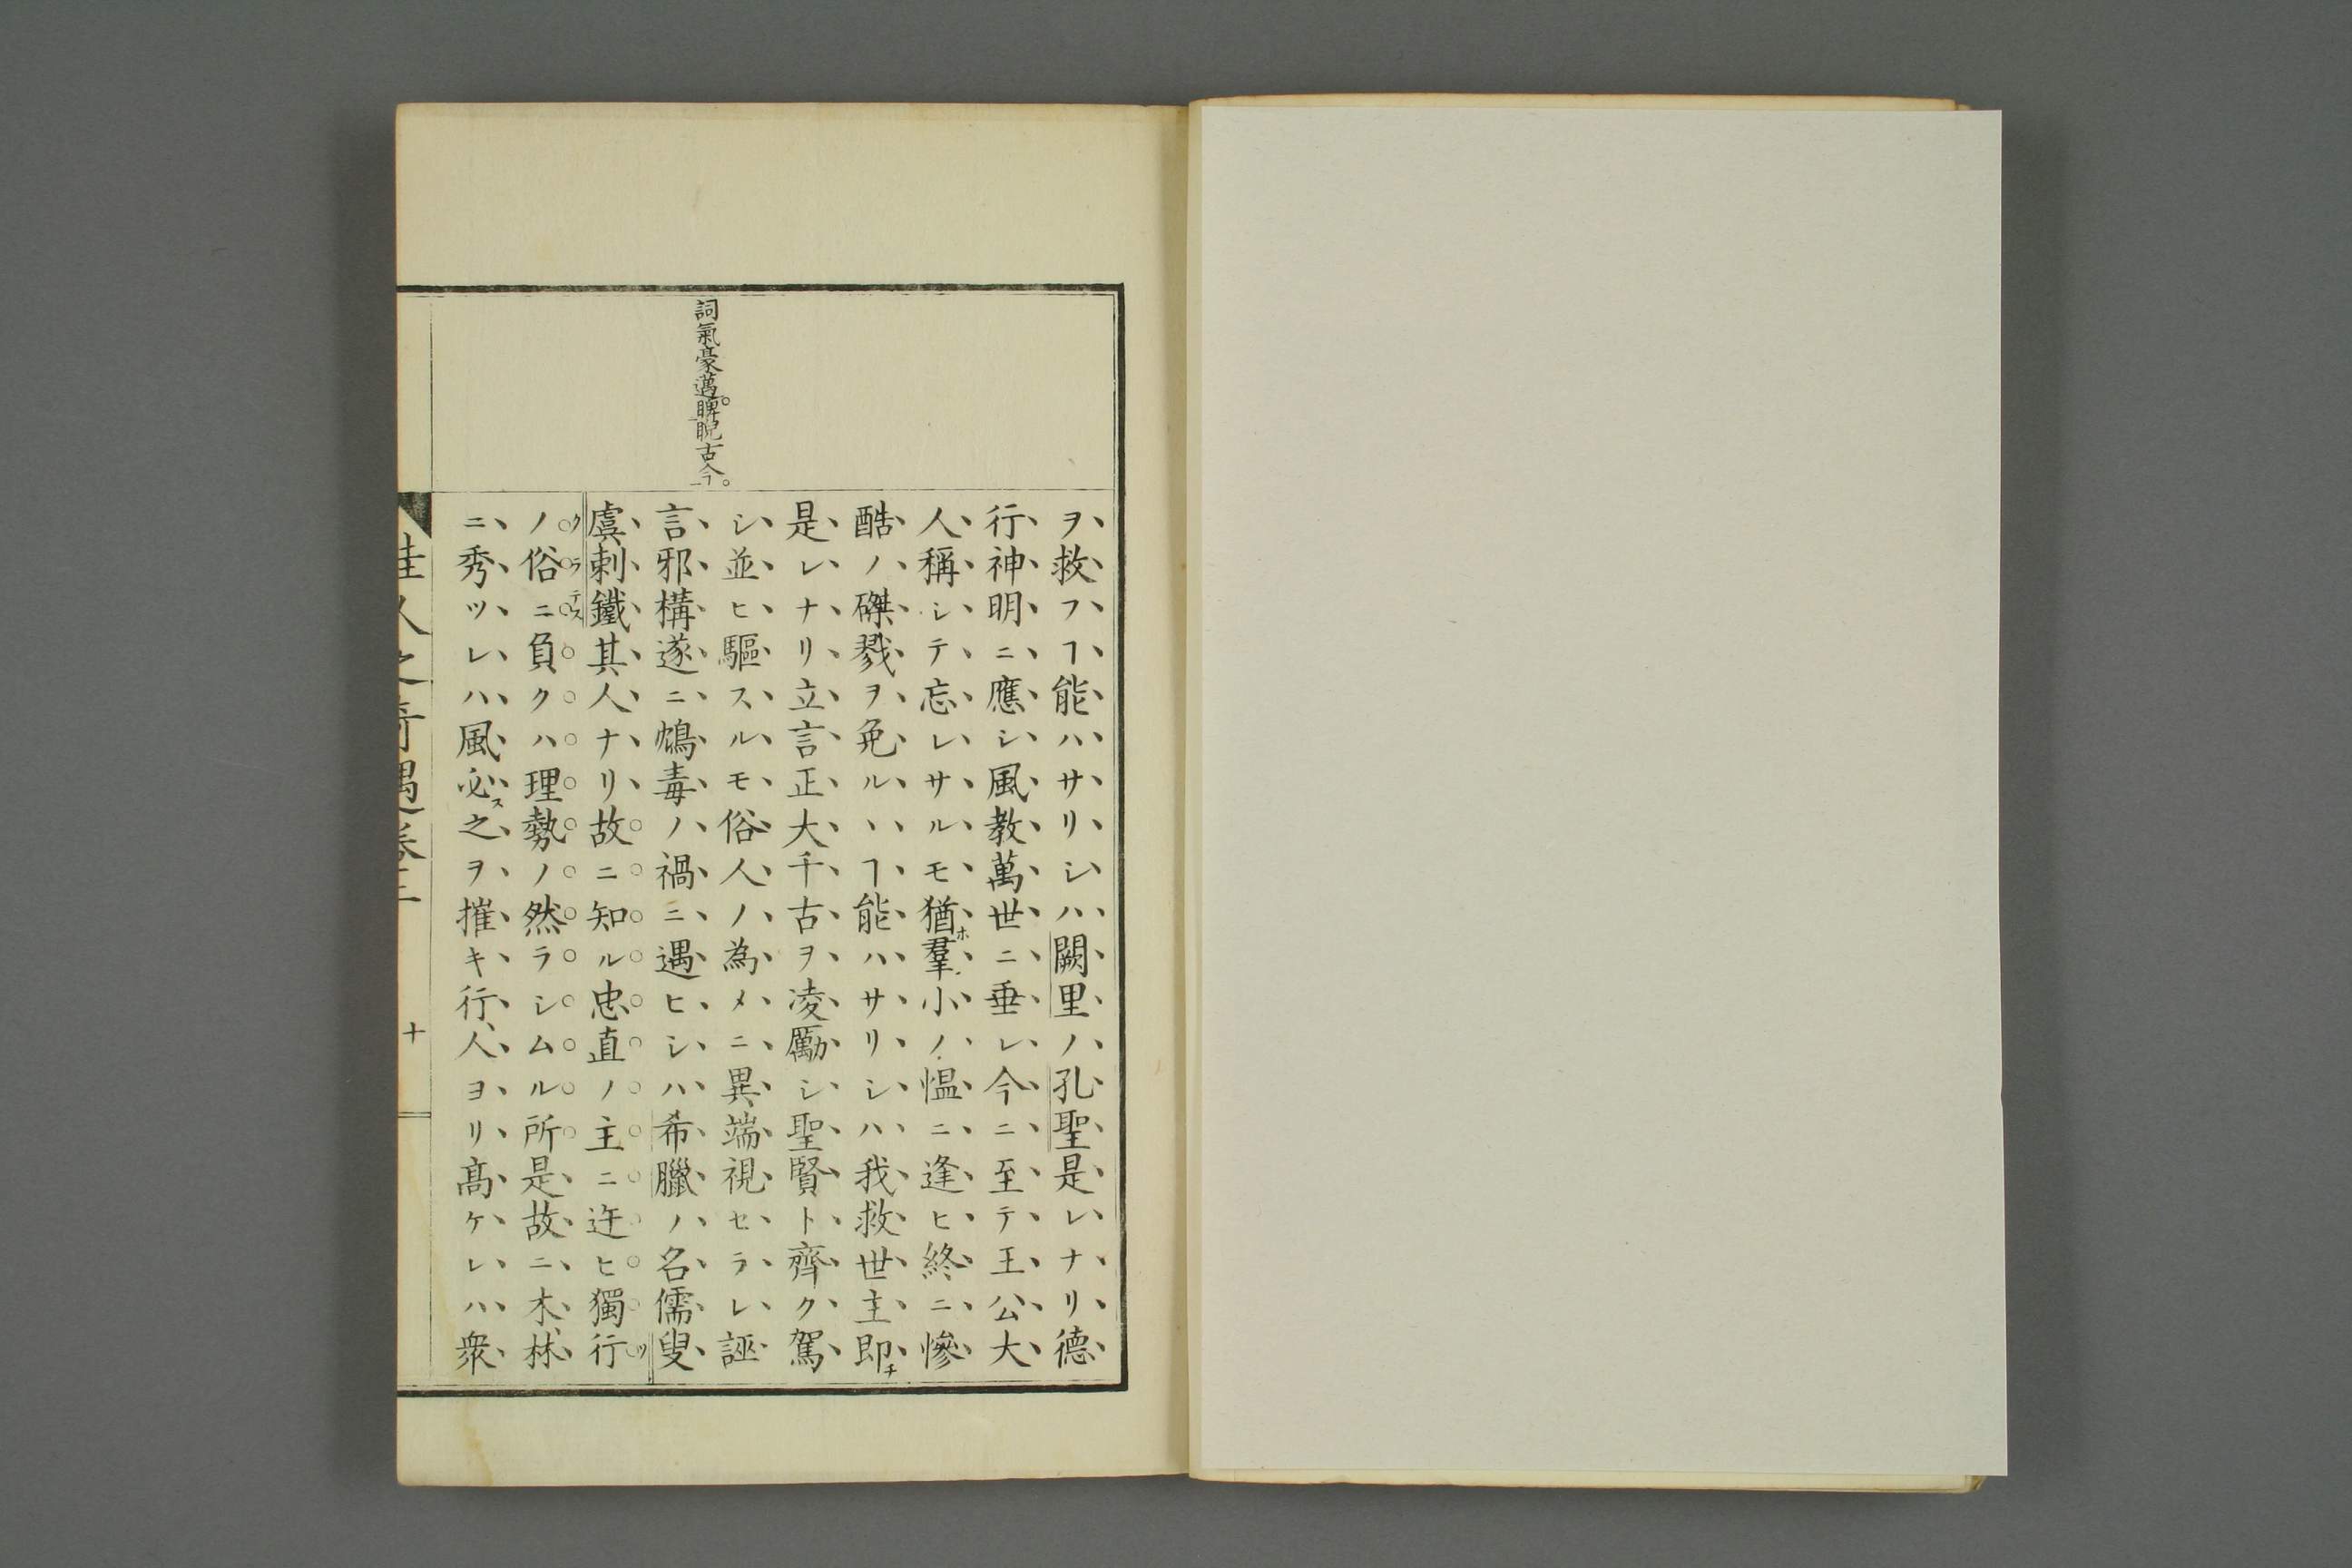 詞氣豪邁。睥睨古今。
ヲ救フヿ能ハサリシハ闕里ノ孔聖是レナリ德
行神明ニ應シ風教萬世ニ垂レ今ニ至テ王公大
人稱シテ忘レサルモ猶ホ羣小ノ慍ニ逢ヒ終ニ慘
酷ノ磔戮ヲ免ルヽヿ能ハサリシハ我救世主即チ
是レナリ立言正大千古ヲ凌勵シ聖賢ト齊ク駕
シ並ヒ驅スルモ俗人ノ為メニ異端視セラレ誣
言邪構遂ニ鴆毒ノ禍ニ遇ヒシハ希臘ノ名儒叟
虞剌鐵其人ナリ故ニ知ル忠直ノ主ニ迕ヒ獨行
ソクラテス
ノ俗ニ負クハ理勢ノ然ラシムル所是故ニ木林
ニ秀ツレハ風必ス之ヲ摧キ行人ヨリ髙ケレハ衆
佳人之奇遇卷三 十